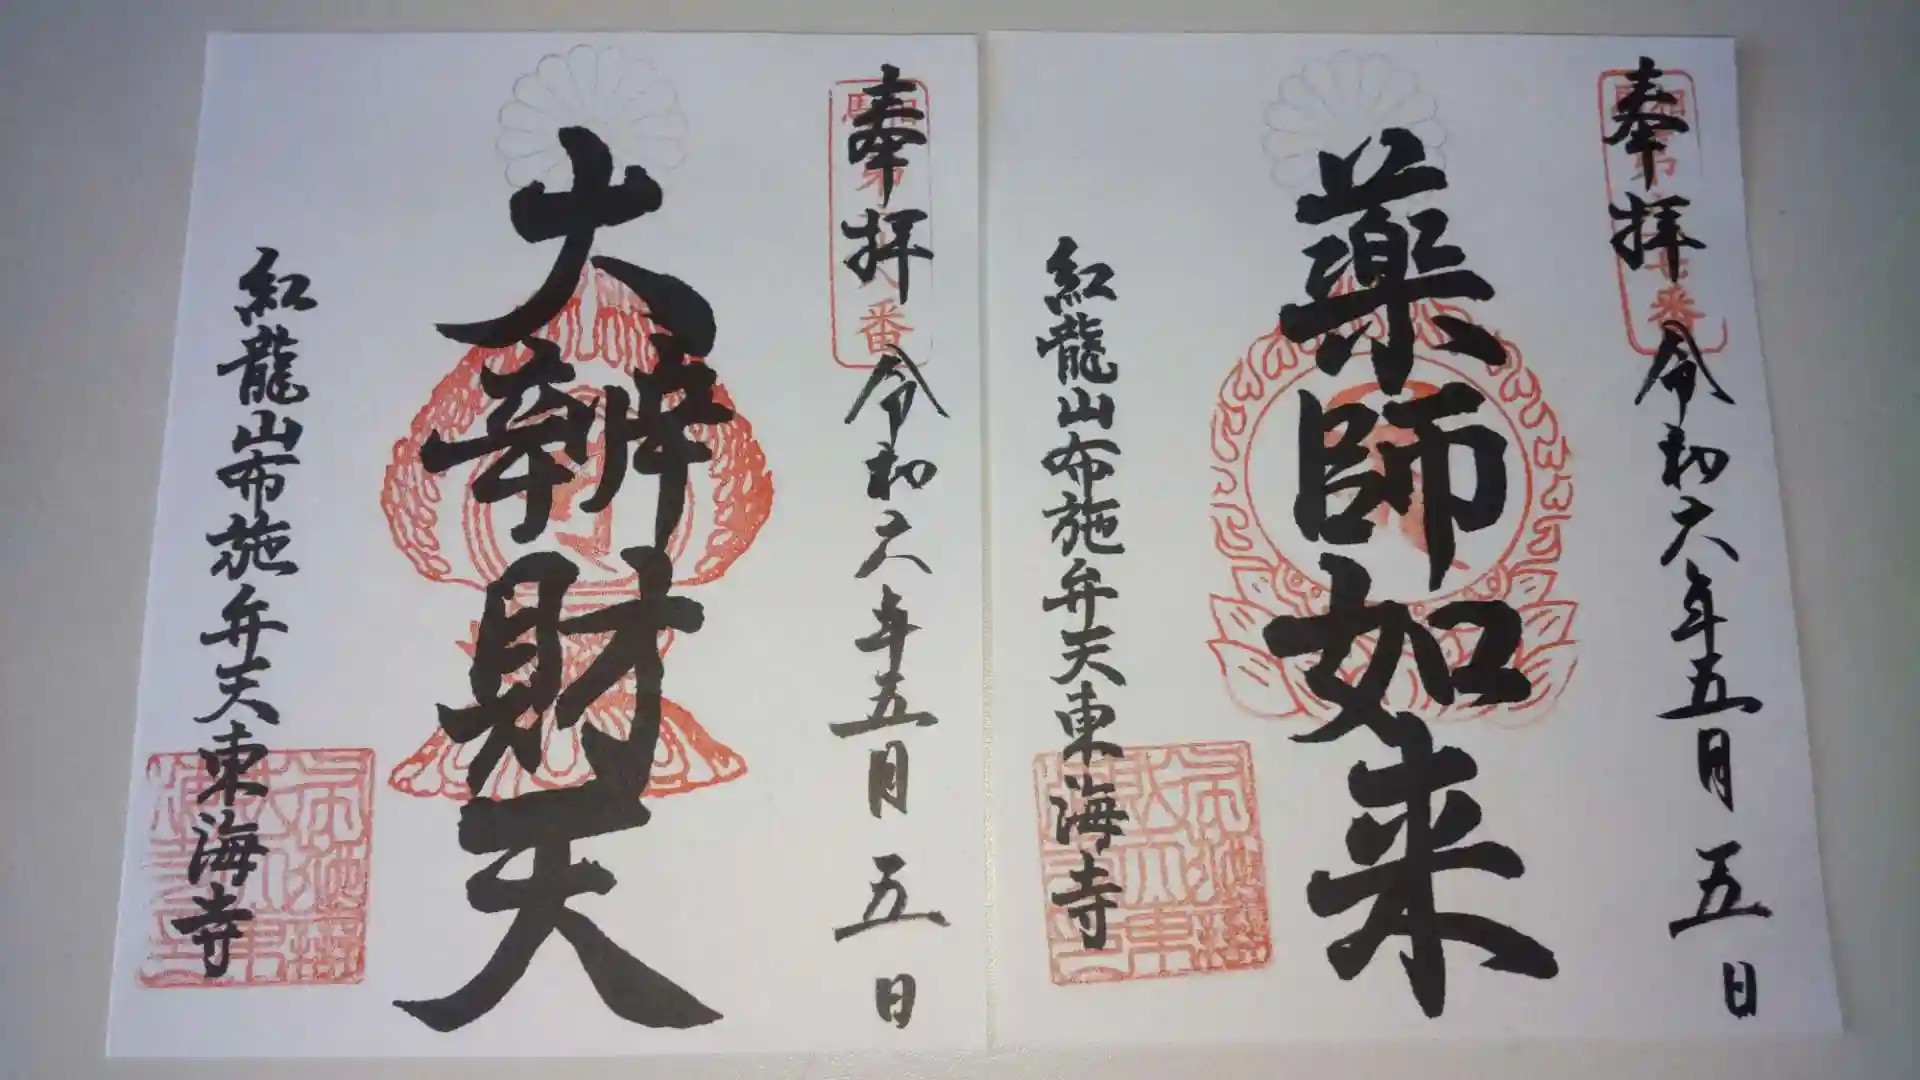 奉拝 令和六年五月五日
薬師如来
紅龍山布施弁天東海寺
奉拝 令和六年五月五日
大辨財天
紅龍山布施弁天東海寺